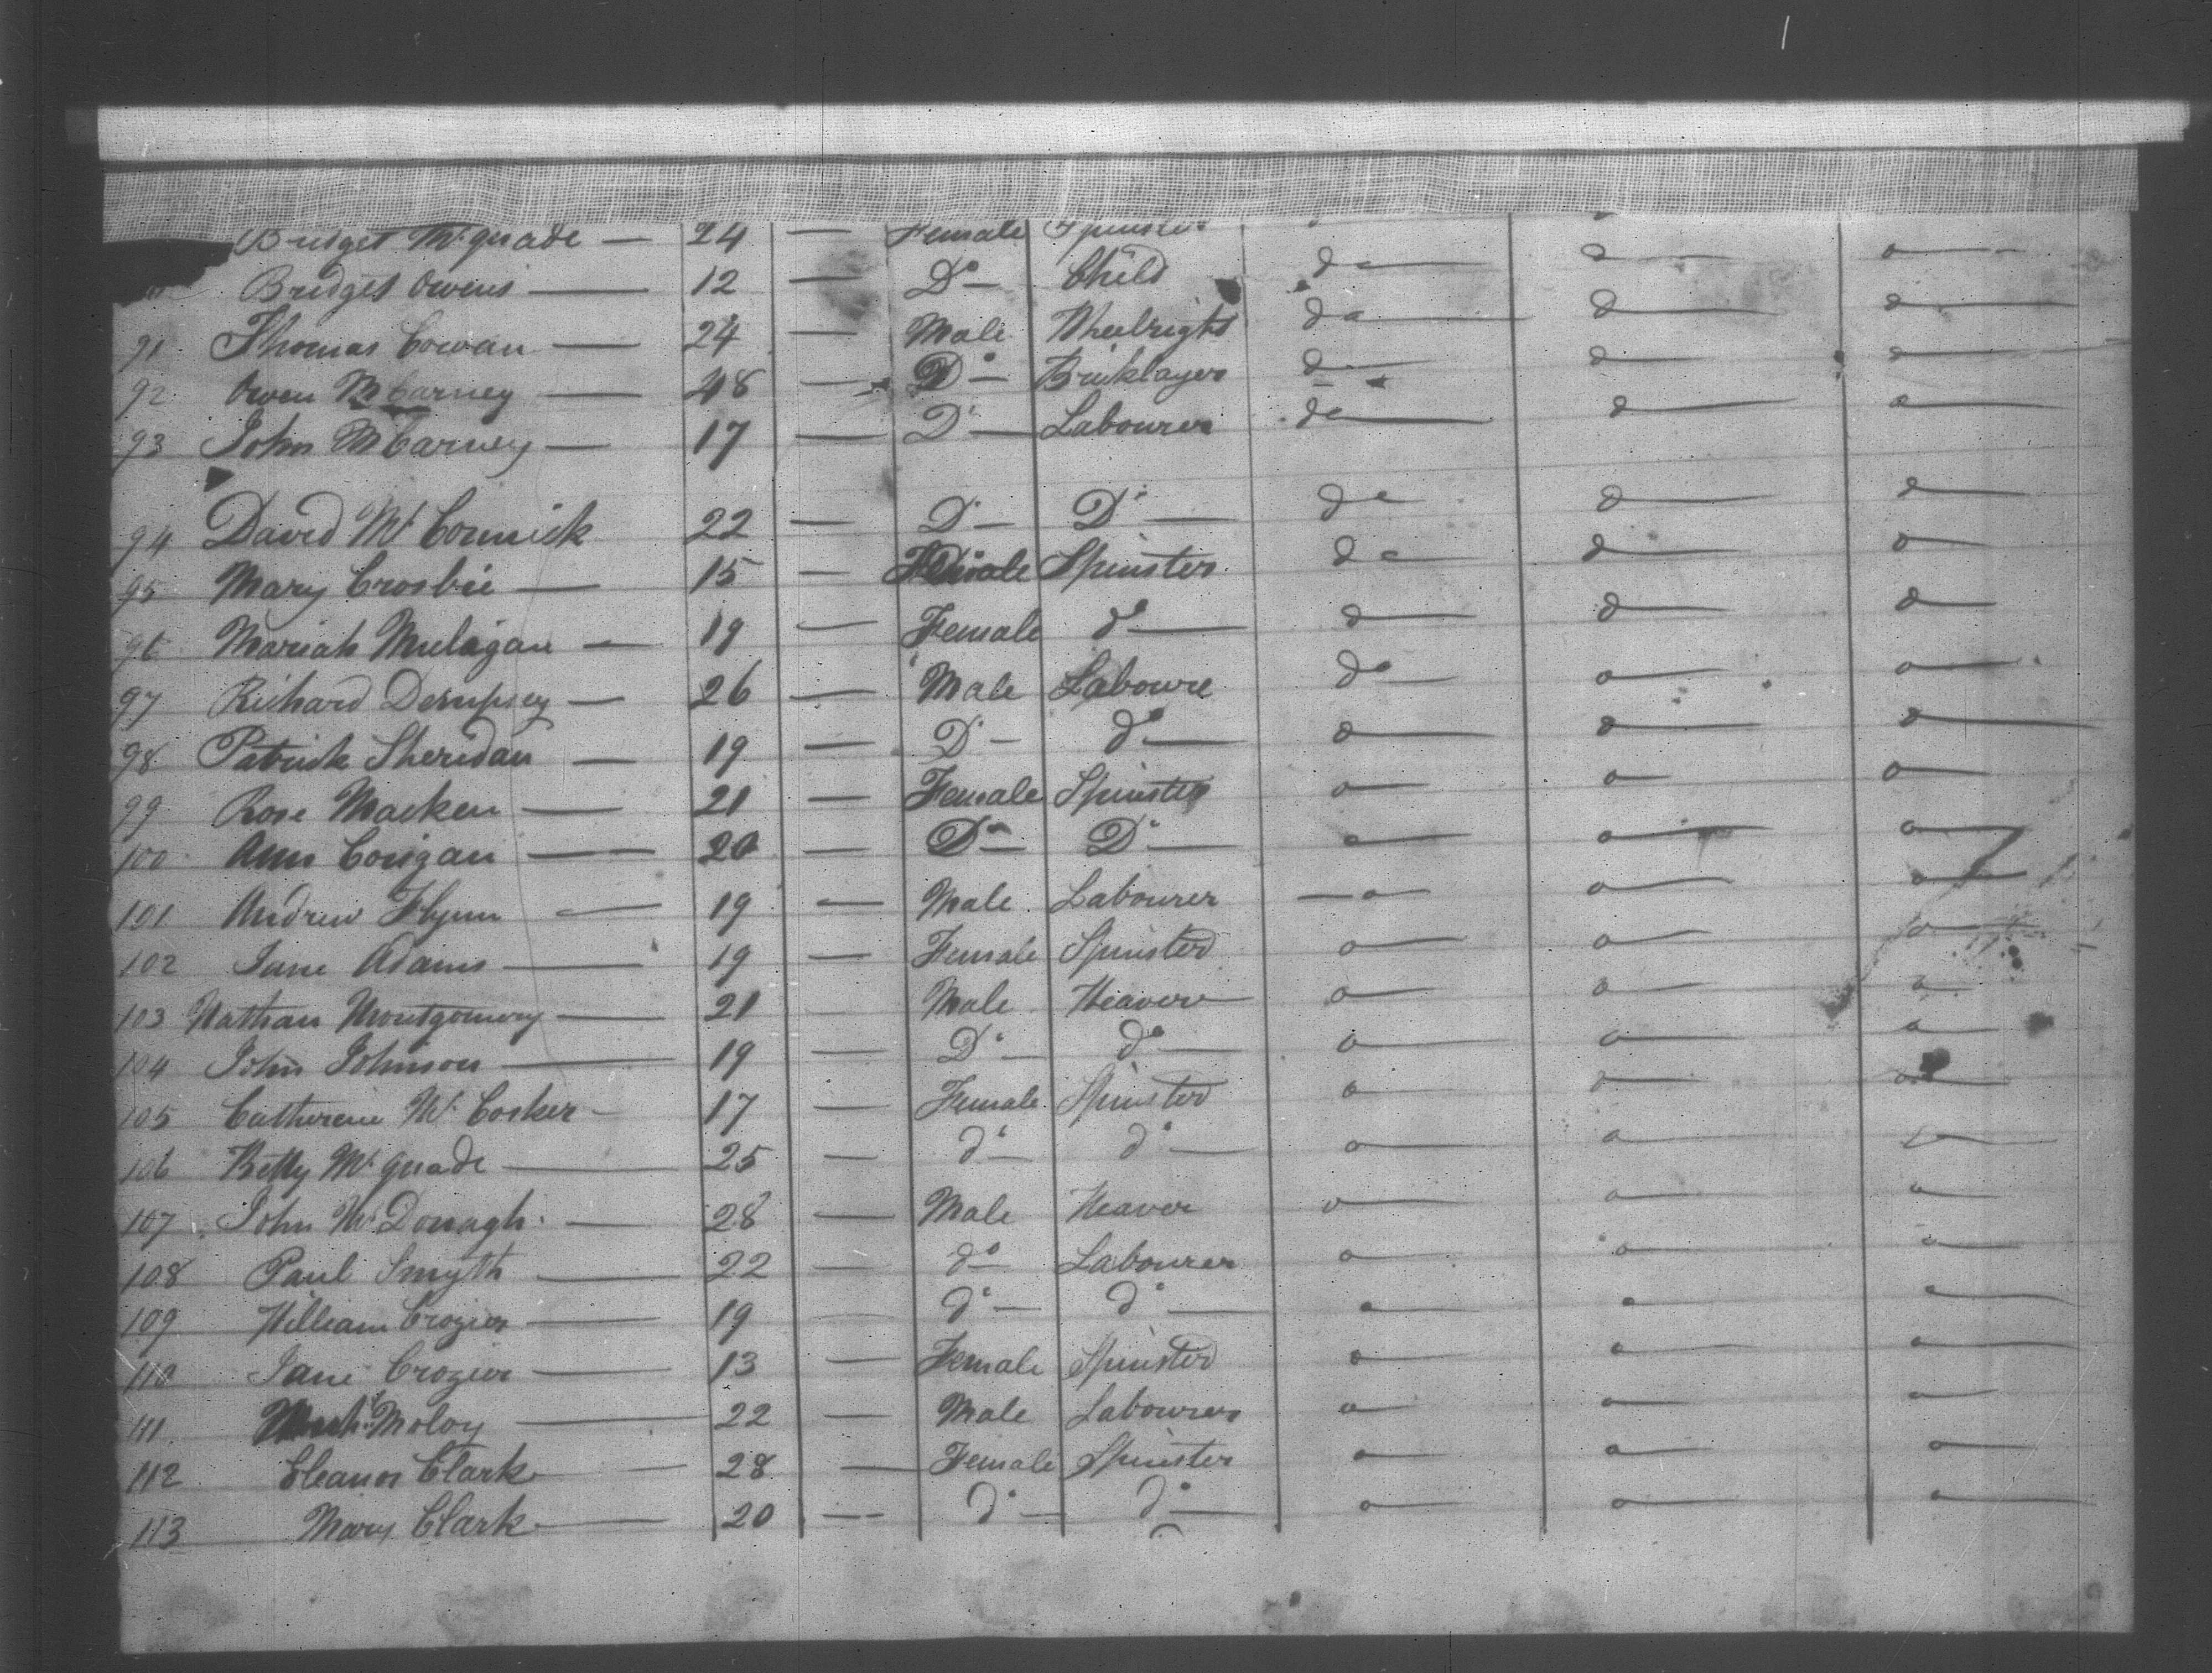 Bridget McQuade — 24 — Female Spinster
Bridget Owens — 12 — Do — Child do — d — o —
91 Thomas Cowan — 24 — Male Wheelright do — d — d —
92 Owen McCarney — 48 — Do — Bricklayer d — d — d —
93 John McCarney — 17 — Do — Labourer do — d — o —
94 David McCormick 22 — Do — Do — do d — d —
95 Mary Crosbie — 15 — Female Spinster do — d — o —
96 Mariah Muligan — 19 — Female do — d — d — d —
97 Richard Dempsey — 26 — Male Laboure do — o — o —
98 Patrick Sheridan — 19 — Do — do — d — d — d —
99 Rose Macken — 21 — Female Spinster o — o — o —
100 Ann Corigan — 20 — Do — Do — o — o — o —
101 Andrew Flynn — 19 — Male Labourer — o — o — o —
102 Jane Adams — 19 — Female Spinster o — o — o —
103 Nathan Montgomery — 21 Male Weaver — o — o — o —
104 John Johnson — 19 — Do — do — o — o — o —
105 Catherine Mc Cosker — 17 — Female Spinster o — o — o —
106 Betty McQuade — 25 — do — do — o — o — o —
107 John McDonagh — 28 — Male Weaver o — o — o —
108 Paul Smyth — 22 — do Labourer o — o — o —
109 William Crozier — 19 do — do — o — o — o —
110 Jane Crozier — 13 — Female Spinster o — o — o —
111 Moloy — 22 — Male Labourer o — o — o —
112 Eleanor Clark — 28 — Female Spinster o — o — o —
113 Mary Clark — 20 — do — do — o — o — o —